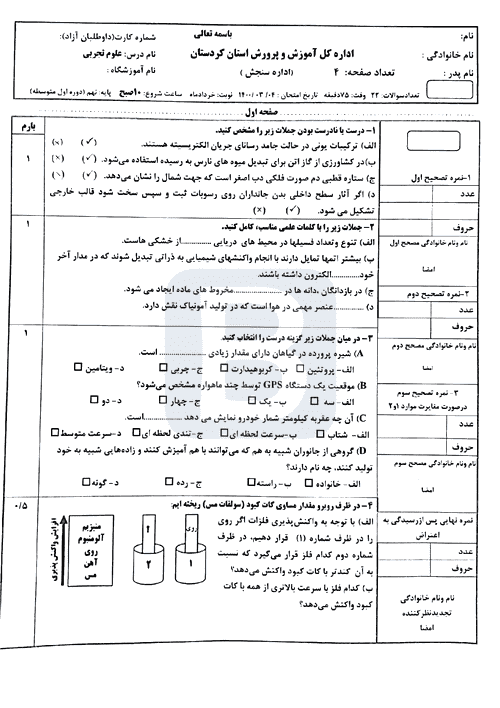 باسمه تعالی
نام:
نام خانوادگی :
نام پدر :
اداره کل آموزش و پرورش استان کردستان
تعداد صفحه: ۴ (اداره سنجش )
شماره کارت(داوطلبان آزاد):
نام درس: علوم تجربی
نام آموزشگاه :
تعدادسوالات: ۲۲ وقت: ۷۵دقیقه تاریخ امتحان : ۰۴/ ۰۳/ ۱۴۰۰ نوبت: خردادماه ساعت شروع : ۱۰صبح پایه: نهم (دوره اول متوسطه)
صفحه اول
۱-نمره تصحیح اول
عدد
حروف
نام ونام خانوادگی مصحح اول
امضا
۲-نمره تصحیح دوم
عدد
حروف
نام ونام خانوادگی مصحح دوم
امضا
۳- نمره تصحیح سوم
درصورت مغایرت موارد ۱و۲
عدد
حروف
نام ونام خانوادگی مصحح سوم
امضا
نمره نهایی پس ازرسیدگی به
اعتراض
عدد
حروف
نام ونام خانوادگی
تجدیدنظرکننده
امضا
بارم
۱- درست یا نادرست بودن جملات زیر را مشخص کنید.
الف) ترکیبات یونی در حالت جامد رسانای جریان الکتریسیته هستند. (✓) (×)
ب)در کشاورزی از گاز اتن برای تبدیل میوه های نارس به رسیده استفاده می‌شود. (✓) (×)
ج) ستاره قطبی دم صورت فلکی دب اصغر است که جهت شمال را نشان می‌دهد. (✓) (×)
د) اگر آثار سطح داخلی بدن جانداران روی رسوبات ثبت و سپس سخت شود قالب خارجی
تشکیل می شود. (✓) (×)
۱
۲- جملات زیر را با کلمات علمی مناسب، کامل کنید.
الف) تنوع وتعداد فسیلها در محیط های دریایی ............از خشکی هاست.
ب) بیشتر اتمها تمایل دارند با انجام واکنشهای شیمیایی به ذراتی تبدیل شوند که در مدار آخر
خود............الکترون داشته باشند.
ج) در بازدانگان ،دانه ها در ................مخروط های ماده ایجاد می شود.
د)................عنصر مهمی در هوا است که در تولید آمونیاک نقش دارد.
۱
۳- در میان جملات زیر گزینه درست را انتخاب کنید.
A) شیره پرورده در گیاهان دارای مقدار زیادی ............ است.
الف- پروتئین ب- کربوهیدرات ج- چربی د- ویتامین
B) موقعیت یک دستگاه GPS توسط چند ماهواره مشخص می‌شود؟
الف- سه ب- یک ج- چهار د- دو
C) آن چه عقربه کیلومتر شمار خودرو نمایش می دهد ............است.
الف- شتاب ب-سرعت لحظه ای ج-تندی لحظه ای د-سرعت متوسط
D) گروهی از جانوران شبیه به هم که می‌توانند با هم آمیزش کنند و زاده‌هایی شبیه به خود
تولید کنند، چه نام دارند؟
الف- خانواده ب- راسته ج- رده د- گونه
۱
۴- در ظرف روبرو مقدار مساوی کات کبود (سولفات مس) ریخته ایم:
الف) با توجه به واکنش‌پذیری فلزات اگر روی
را در ظرف شماره (۱) قرار دهیم، در ظرف
شماره دوم کدام فلز قرار می‌گیرد که نسبت
به آن کندتر با کات کبود واکنش می‌دهد؟
ب) کدام فلز با سرعت بالاتری از همه با کات
کبود واکنش می‌دهد؟
روی
؟
۱
۲
منیزیم
آلومینیوم
روی
آهن
مس
افزایش واکنش پذیری
۰/۵